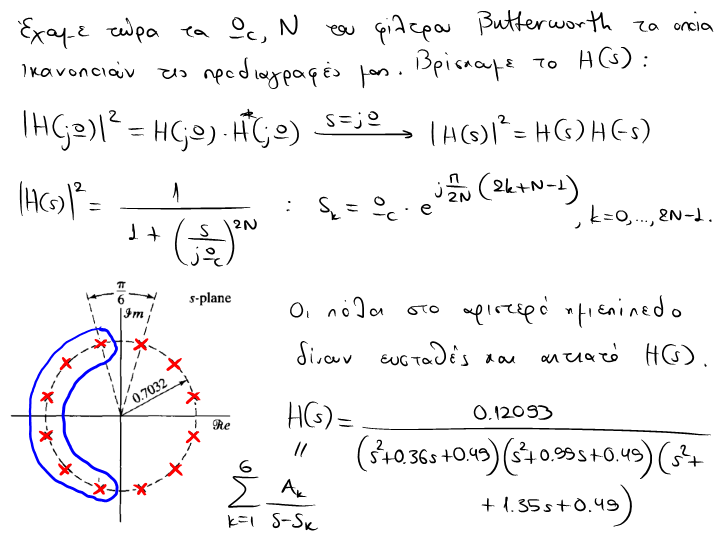 Έχουμε τώρα τα Ω_c, N του φίλτρου Butterworth τα οποία
ικανοποιούν τις προδιαγραφές μας. Βρίσκουμε το H(s):
|H(jΩ)|² = H(jΩ)·H*(jΩ) s=jΩ → |H(s)|² = H(s)H(-s)
|H(s)|² = 1 / (1 + (s/(jΩ_c))^{2N}) : s_k = Ω_c · e^{j π/2N (2k+N-1)}, k=0,...,2N-1.
π/6
Im
s-plane
0.7032
Re
Οι πόλοι στο αριστερό ημιεπίπεδο
δίνουν ευσταθές και αιτιατό H(s).
H(s) = 0.12093 / ((s²+0.36s+0.49)(s²+0.99s+0.49)(s²+
+1.35s+0.49))
=
∑_{k=1}^{6} A_k / (s-s_k)